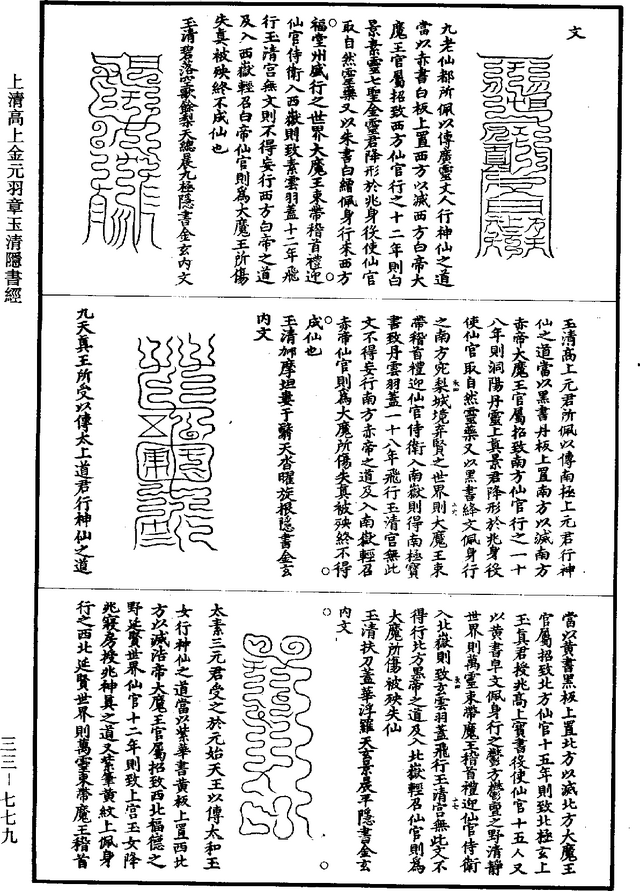 文
九老仙都所佩以傳廣靈丈人行神仙之道
當以赤書白板上置西方以滅西方白帝大
魔王官屬招致西方仙官行之十二年則白
景素靈七聖金靈君降形於兆身役使仙官
取自然靈藥又以朱書白繒佩身行來西方
福堂州盛行之世界大魔王束帶稽首禮迎
仙官侍衛入西嶽則致素雲羽蓋十二年飛
行玉清宮無文則不得妄行西方白帝之道
及入西嶽輕召白帝仙官則爲大魔王所傷
失真被殃終不成仙也
玉清碧落空歌餘梨天總晨九極隱書金玄內文
玉清高上元君所佩以傳南極上元君行神
仙之道當以黑書丹板上置南方以滅南方
赤帝大魔王官屬招致南方仙官行之一十
八年則洞陽丹靈上真景君降形於兆身役
使仙官取自然靈藥又以黑書絳文佩身行
之南方兜梨城境弃賢之世界則大魔王束
帶稽首禮迎仙官侍衛入南嶽則得南極寶
書致丹雲羽蓋一十八年飛行玉清宮無此
文不得妄行南方赤帝之道及入南嶽輕召
赤帝仙官則爲大魔所傷失真被殃終不得
成仙也
玉清加摩坦婁于翳天沓曜旋根隱書金玄
內文
九天真王所受以傳太上道君行神仙之道
當以黃書黑板上置北方以滅北方大魔王
官屬招致北方仙官十五年則致北極玄上
玉真君授兆高上寶書役使仙官十五人又
以黃書皁文佩身行之鬱方鬱單之野清靜
世界則萬靈束帶魔王稽首禮迎仙官侍衛
入北嶽則致玄雲羽蓋飛行玉清宮無此文不
得行北方黑帝之道及入北嶽輕召仙官則爲
大魔所傷被殃失仙
玉清扶刀蓋華浮羅天玄景晨平隱書金玄
內文
太素三元君受之於元始天王以傳太和玉
女行神仙之道當以紫筆書黃板上置西北
方以滅浩帝大魔王官屬招致西北福德之
野延賢世界仙官十二年則致上宮玉女降
兆寢房授兆神真之道又紫筆黃紋上佩身
行之西北延賢世界則萬靈束帶魔王稽首
上清高上金元羽章玉清隱書經
三三－七七九